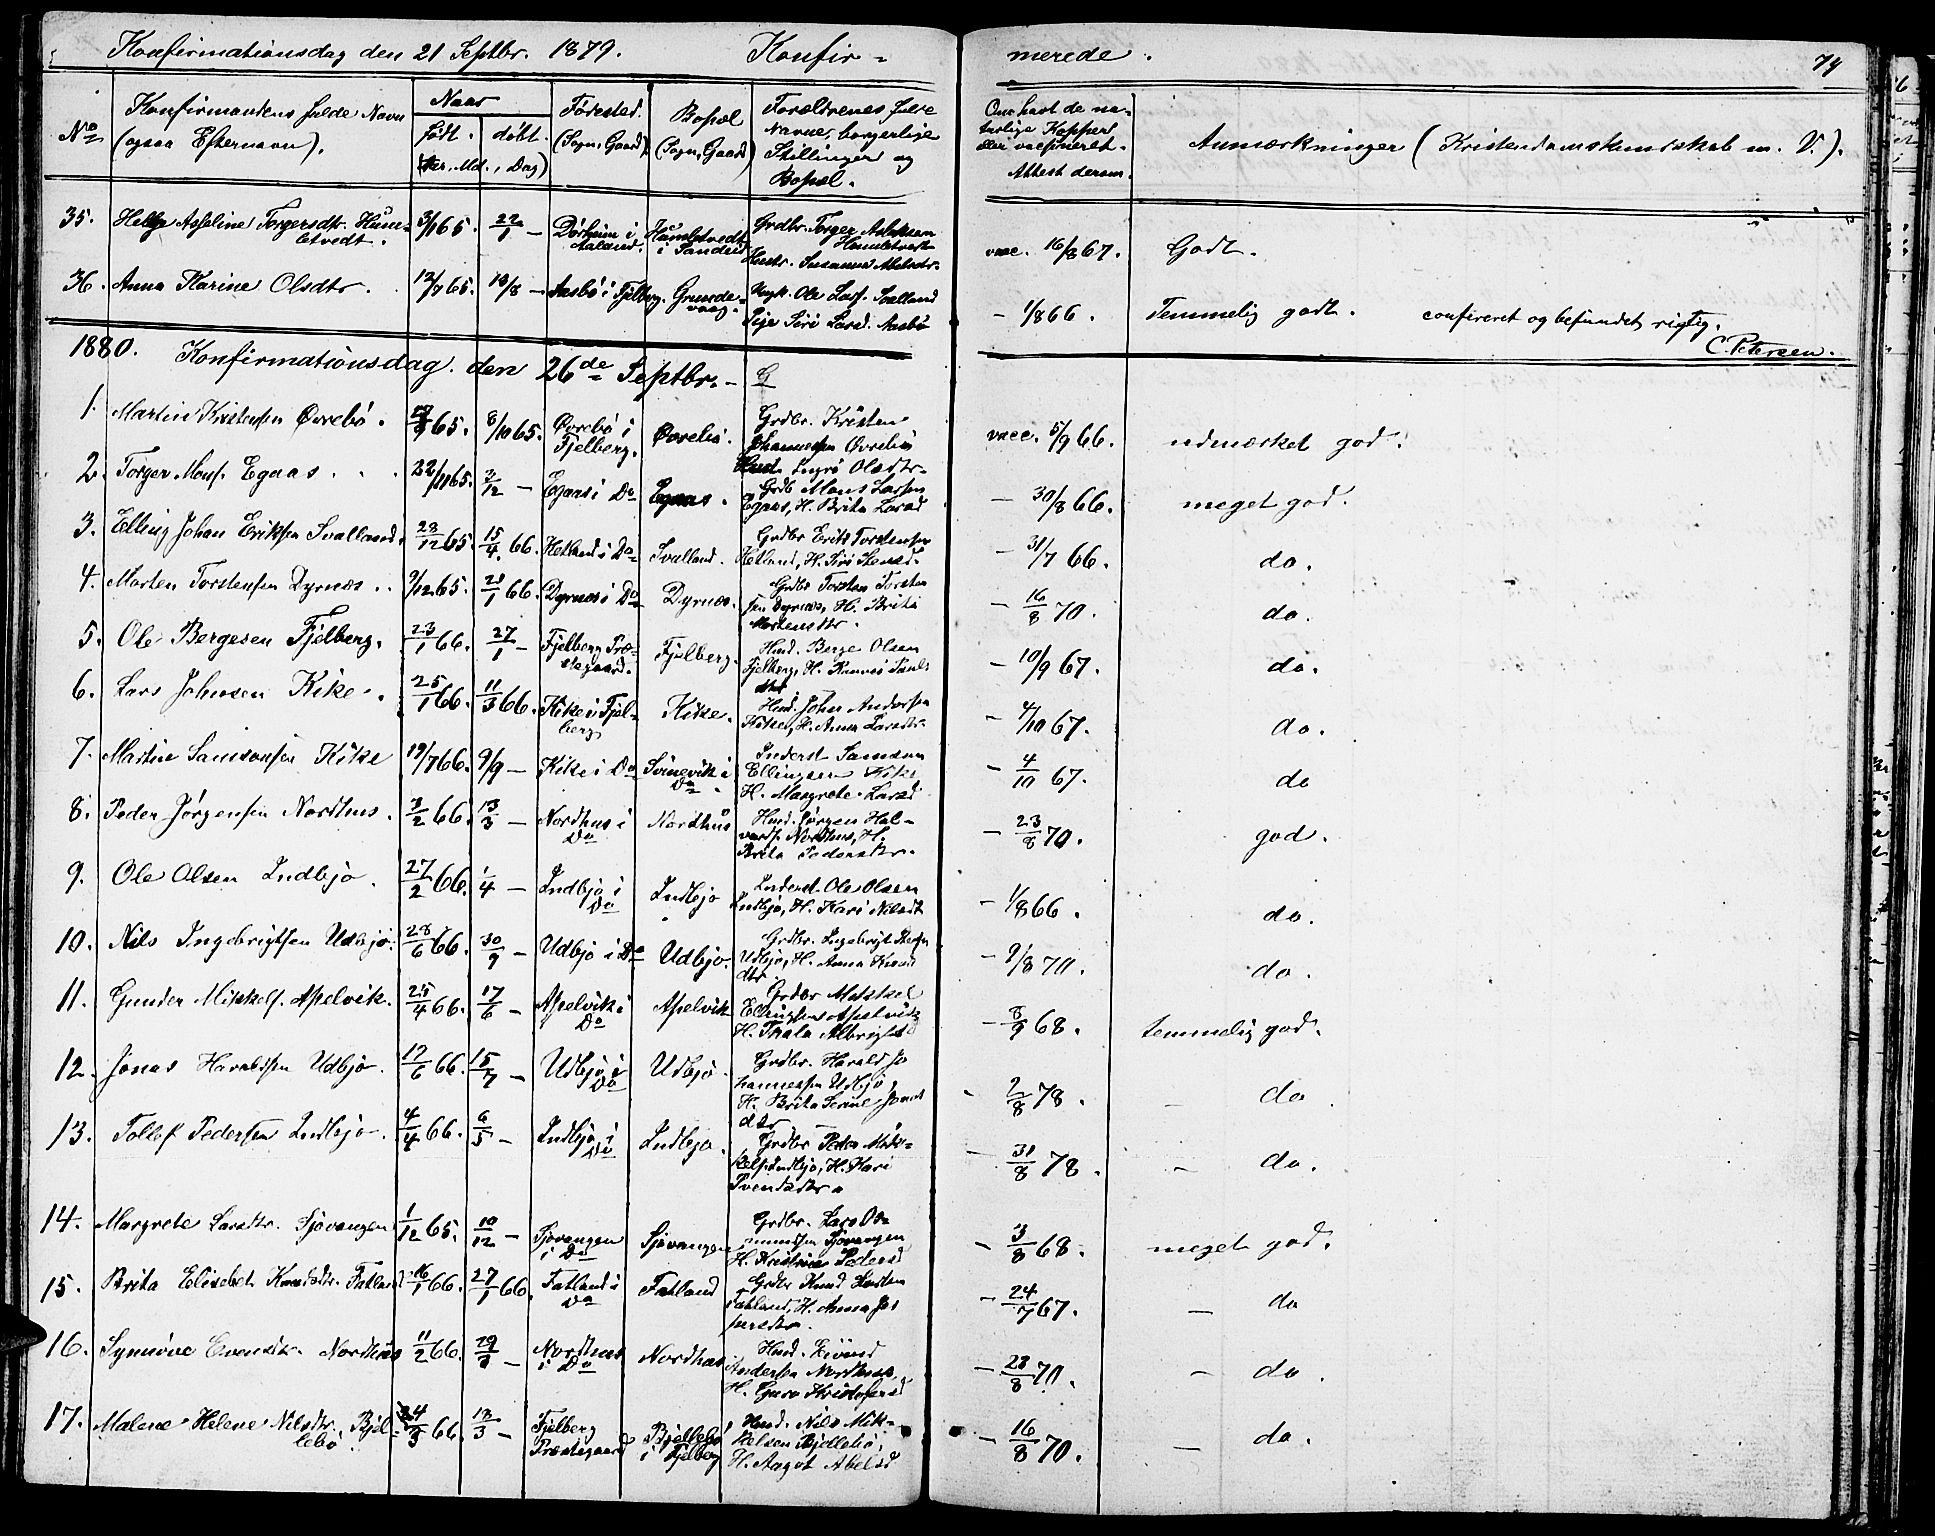 Konfirmationsdag den 21 Septbr. 1879. Konfir-
merede. 74
No
Konfirmandens fulde Navn
(ogsaa Efternavn).
Naar
født. døbt.
(Aar, Md., Dag)
Fødested.
(Sogn, Gaard)
Bopæl
(Sogn, Gaard)
Forældrenes fulde
Navne, borgerlige
Stillinger og
Bopæl.
Om havt de na-
turlige Kopper
eller vaccineret.
Attest derom.
Anmærkninger (Kristendomskundskab m. V.).
35. Helga Asseline Torgersdtr. Hum-
letvedt. 3/1 65. 22/1 - i Humletvedt
i Sandeid Grdbr. Torger Aslaksen
Humletvedt
Hustr. Susanna Abelsdtr. vacc. 16/8 67. Godt.
36. Anna Karine Olsdtr. 12/7 65. 13/8 - Aasbø i Fjelberg. Grunde-
vaag. Ungk. Ole Lars. Svalland
Pige Siri Larsd. Aasbø - 1/8 66. Temmelig godt. confereret og befundet rigtig.
C. Petersen.
1880. Konfirmationsdag den 26de Septbr. - G
1. Martin Kristensen Øvrebø. 65. 8/10 65. Øvrebø i
Fjelberg. Øvrebø. Grdbr. Kristen
Johannessen Øvrebø
Hust. Ingri Olsdtr. vacc. 5/9 66. udmærket god.
2. Torger Mons. Egaas. 22/11 65. 3/12 - Egaas i Do Egaas. Grdb. Mons Larsen
Egaas, H. Brita Larsd - 30/8 66. meget god.
3. Elling Johan Eriksen Svalland. 28/12 65. 15/4 66. Hetland i Do Svalland. Grdbr Erik Torstensen
Hetland, H. Siri Stensd. - 31/7 66. do.
4. Morten Torstensen Dyrnæs. 9/12 65. 21/1 66. Dyrnæs i Do Dyrnæs. Grdbr Torsten Torsten
sen Dyrnæs, H. Brita
Mortensdtr. - 16/8 70. do.
5. Ole Bergesen Fjelberg. 23/1 66. 27/1 - Fjelberg Præ-
stegaard. Fjelberg. Husd. Berge Olsen
Fjelberg, H. - 10/9 67. do.
6. Lars Johnsen Kike. 25/1 66. 11/3 66. Kike i Fjel-
berg Kike. Husd. John Andersen
Kike, H. Anna Larsdtr. - 4/10 67. do.
7. Martin Samsonsen Kike 19/7 66. 9/9 - Kike i Do Svinevik i
Do. Inderst Samson
Ellingsen Kike
H. Margrete Larsd - 4/10 67. do
8. Peder Jørgensen Nordhus. 3/2 66. 13/3 - Nordhus i
Do Nordhus Husd. Jørgen Hal-
vards. Nordhus, H.
Brita Pedersdtr. - 23/8 70. god.
9. Ole Olsen Indbjo. 27/2 66. 1/4 - Indbjo i
Do Indbjo Inderst Ole Olsen
Indbjo, H. Kari Nilsdt - 1/8 66. do.
10. Nils Ingebrigtsen Udbjo. 28/6 66. 30/9 - Udbjo i Do Udbjo. Grdbr. Ingebrigt
Udbjo, H. Anna Knud
dtr - 9/8 70. do.
11. Gunder Mikkels. Apelvik. 25/4 66. 17/6 - Apelvik i
Do Apelvik Grdbr Mikkel
Ellingsen Apelvik
H. Thala Albrigtsd - 8/9 68. temmelig god.
12. Jonas Haraldsen Udbjo. 17/6 66. 15/7 - Udbjo i
Do Udbjo. Grdbr. Harald Jo
hannessen Udbjo,
H. Brita Serine Jonas
dtr - 2/8 78. - do
13. Tollef Pedersen Indbjo. 4/4 66. 6/5 - Indbjo i
Do Indbjo. Grdbr Peder Mik-
kels. Indbjo, H. Kari
Svendsdtr. - 31/8 78. - do.
14. Margrete Larsdtr. Sjovangen 1/12 65. 10/12 - Sjovangen
i Do Sjovangen Grdbr. Lars Os-
mundsen Sjovangen
H. Kristine Pedersd - 3/8 68. meget god.
15. Brita Elisebet Knudsdtr. Fatland 16/1 66. 27/1 66. Fatland i
Do Fatland Grdbr Knud Knudsen
Fatland, H. Anna Jes
persdtr. - 24/7 67. - do
16. Synnøve Evensdtr. Nordhus 11/2 66. - Nordhus
i Do Nordhus Husd. Eivind
Andersen Nordhus,
H. Guro Kristofersd - 23/8 70. - do.
17. Malene Helene Nilsdtr. Bjel-
lebø 24/3 66. - Fjelberg
Præstegaard Bjellebø
i Fjelberg Husd. Nils Mik-
kelsen Bjellebø,
H. Aagot Abelsd - 16/8 70. - do.